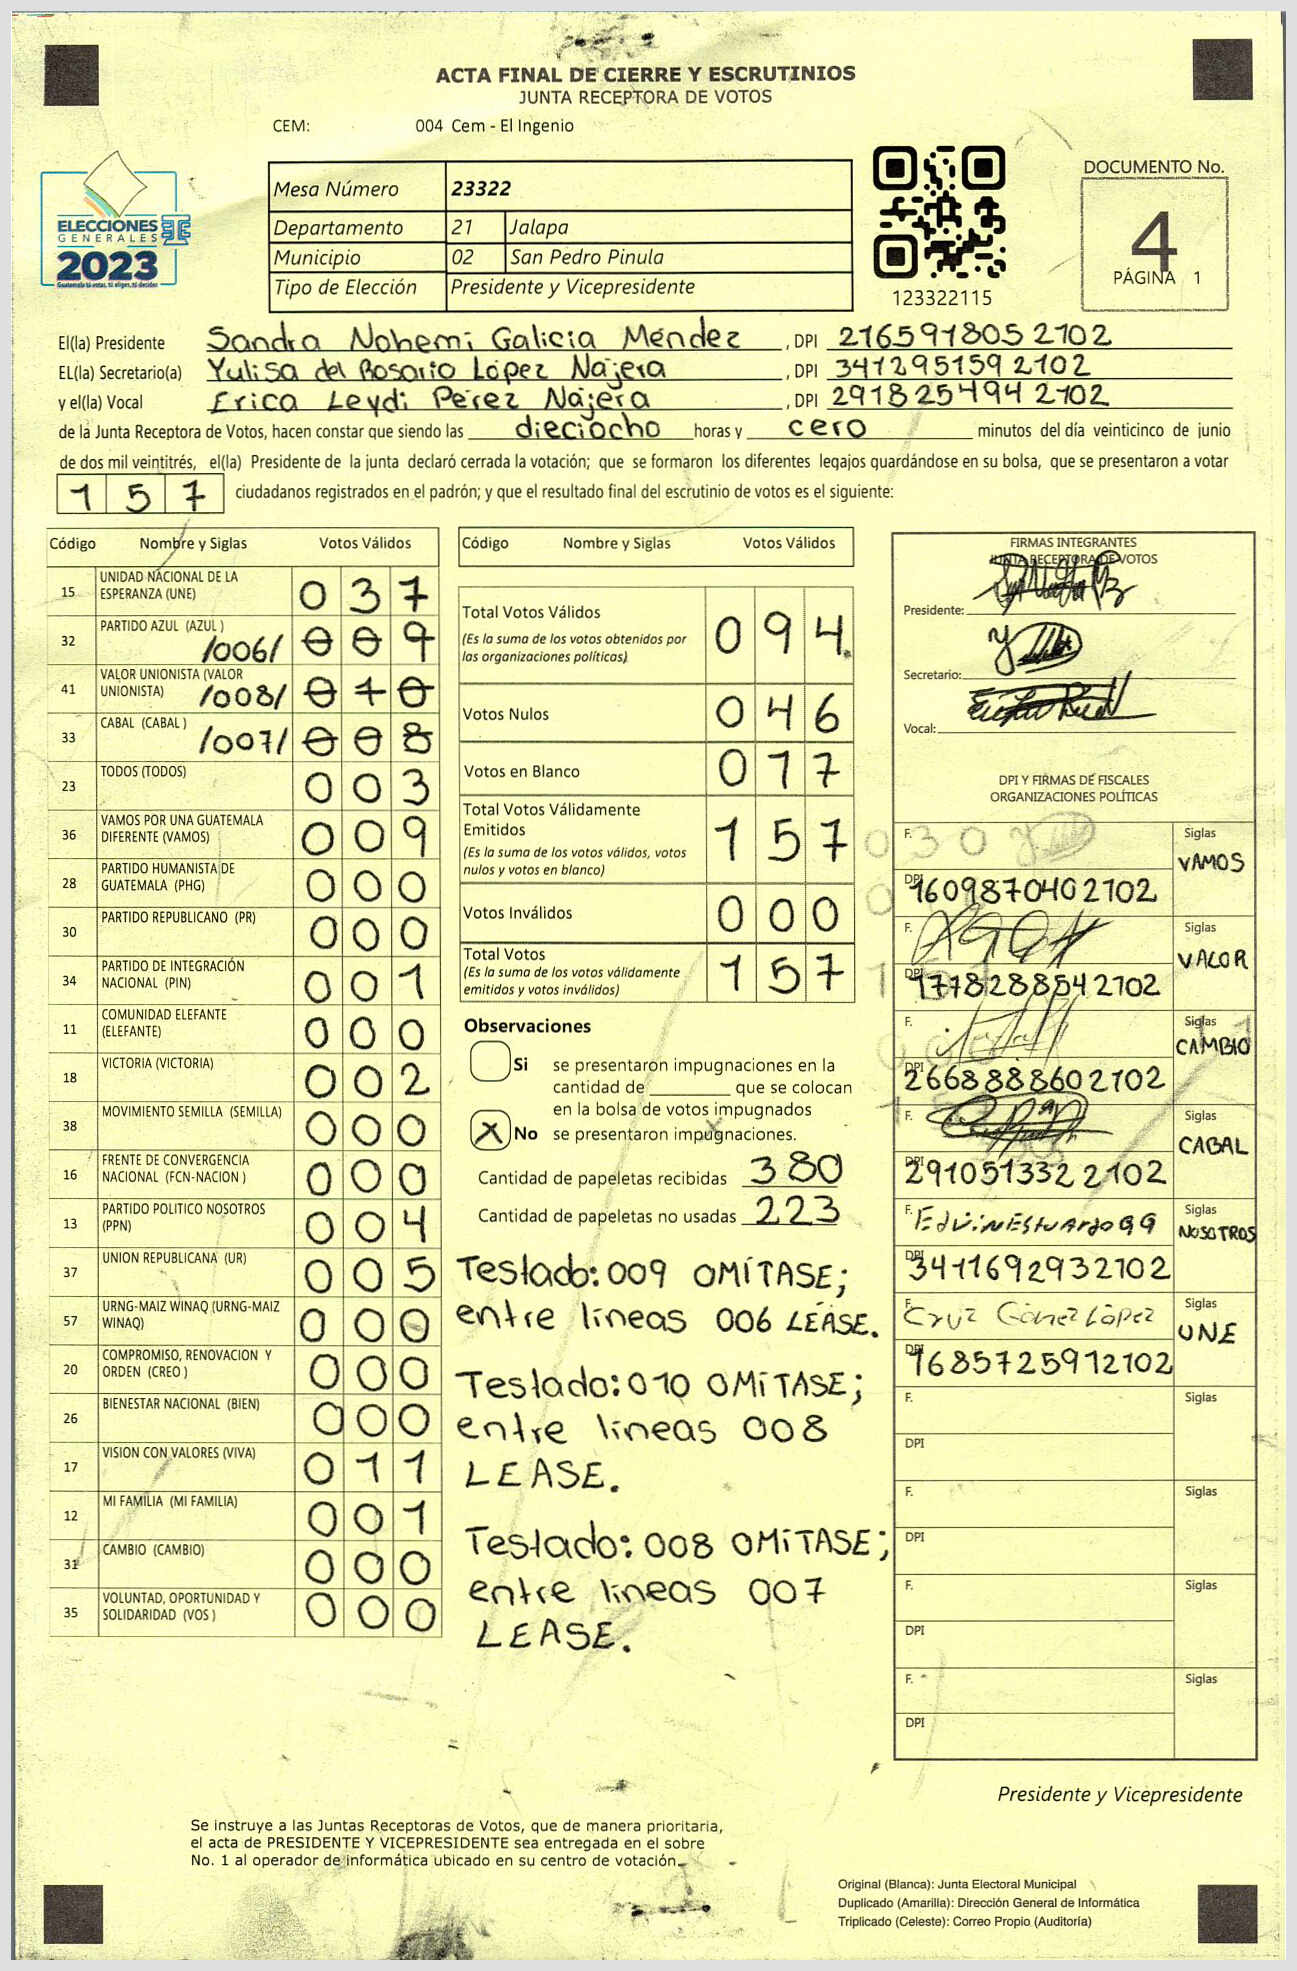 ACTA FINAL DE CIERRE Y ESCRUTINIOS
JUNTA RECEPTORA DE VOTOS
CEM: 004 Cem - El Ingenio
ELECCIONES
GENERALES
2023
Guatemala tú votas, tú eliges, tú decides
Mesa Número 23322
Departamento 21 Jalapa
Municipio 02 San Pedro Pinula
Tipo de Elección Presidente y Vicepresidente
123322115
DOCUMENTO No.
4
PÁGINA 1
El(la) Presidente Sandra Nohemi Galicia Méndez, DPI 216591805 2102
EL(la) Secretario(a) Yulisa del Rosario López Najera, DPI 341295159 2102
y el(la) Vocal Erica Leydi Pérez Najera, DPI 291825494 2102
de la Junta Receptora de Votos, hacen constar que siendo las dieciocho horas y cero minutos del día veinticinco de junio
de dos mil veintitrés, el(la) Presidente de la junta declaró cerrada la votación; que se formaron los diferentes legajos guardándose en su bolsa, que se presentaron a votar
157 ciudadanos registrados en el padrón; y que el resultado final del escrutinio de votos es el siguiente:
Código Nombre y Siglas Votos Válidos
15 UNIDAD NACIONAL DE LA ESPERANZA (UNE) 037
32 PARTIDO AZUL (AZUL ) /006/ 009
41 VALOR UNIONISTA (VALOR UNIONISTA) /008/ 010
33 CABAL (CABAL ) /007/ 008
23 TODOS (TODOS) 003
36 VAMOS POR UNA GUATEMALA DIFERENTE (VAMOS) 009
28 PARTIDO HUMANISTA DE GUATEMALA (PHG) 000
30 PARTIDO REPUBLICANO (PR) 000
34 PARTIDO DE INTEGRACIÓN NACIONAL (PIN) 001
11 COMUNIDAD ELEFANTE (ELEFANTE) 000
18 VICTORIA (VICTORIA) 002
38 MOVIMIENTO SEMILLA (SEMILLA) 000
16 FRENTE DE CONVERGENCIA NACIONAL (FCN-NACION ) 000
13 PARTIDO POLITICO NOSOTROS (PPN) 004
37 UNION REPUBLICANA (UR) 005
57 URNG-MAIZ WINAQ (URNG-MAIZ WINAQ) 000
20 COMPROMISO, RENOVACION Y ORDEN (CREO ) 000
26 BIENESTAR NACIONAL (BIEN) 000
17 VISION CON VALORES (VIVA) 011
12 MI FAMILIA (MI FAMILIA) 001
31 CAMBIO (CAMBIO) 000
35 VOLUNTAD, OPORTUNIDAD Y SOLIDARIDAD (VOS ) 000
Código Nombre y Siglas Votos Válidos
Total Votos Válidos 094
(Es la suma de los votos obtenidos por
las organizaciones políticas)
Votos Nulos 046
Votos en Blanco 017
Total Votos Válidamente
Emitidos 157
(Es la suma de los votos válidos, votos
nulos y votos en blanco)
Votos Inválidos 000
Total Votos 157
(Es la suma de los votos válidamente
emitidos y votos inválidos)
Observaciones
Si se presentaron impugnaciones en la
cantidad de ________ que se colocan
en la bolsa de votos impugnados
X No se presentaron impugnaciones.
Cantidad de papeletas recibidas 380
Cantidad de papeletas no usadas 223
Teslado: 009 OMÍTASE;
entre lineas 006 LÉASE.
Teslado: 010 OMÍTASE;
entre lineas 008
LEASE.
Teslado: 008 OMÍTASE;
entre lineas 007
LEASE.
FIRMAS INTEGRANTES
JUNTA RECEPTORA DE VOTOS
Presidente:
Secretario:
Vocal:
DPI Y FIRMAS DE FISCALES
ORGANIZACIONES POLÍTICAS
F. Siglas
VAMOS
DPI 1609870402102
F. Siglas
VALOR
DPI 1778288542102
F. Siglas
CAMBIO
DPI 2668888602102
F. Siglas
CABAL
DPI 291051332 2102
F. EdvinEstuardoGG Siglas
NOSOTROS
DPI 3411692932102
F. Cruz Gómez López Siglas
UNE
DPI 1685725912102
F. Siglas
DPI
F. Siglas
DPI
F. Siglas
DPI
F. Siglas
DPI
Presidente y Vicepresidente
Se instruye a las Juntas Receptoras de Votos, que de manera prioritaria,
el acta de PRESIDENTE Y VICEPRESIDENTE sea entregada en el sobre
No. 1 al operador de informática ubicado en su centro de votación.
Original (Blanca): Junta Electoral Municipal
Duplicado (Amarilla): Dirección General de Informática
Triplicado (Celeste): Correo Propio (Auditoría)